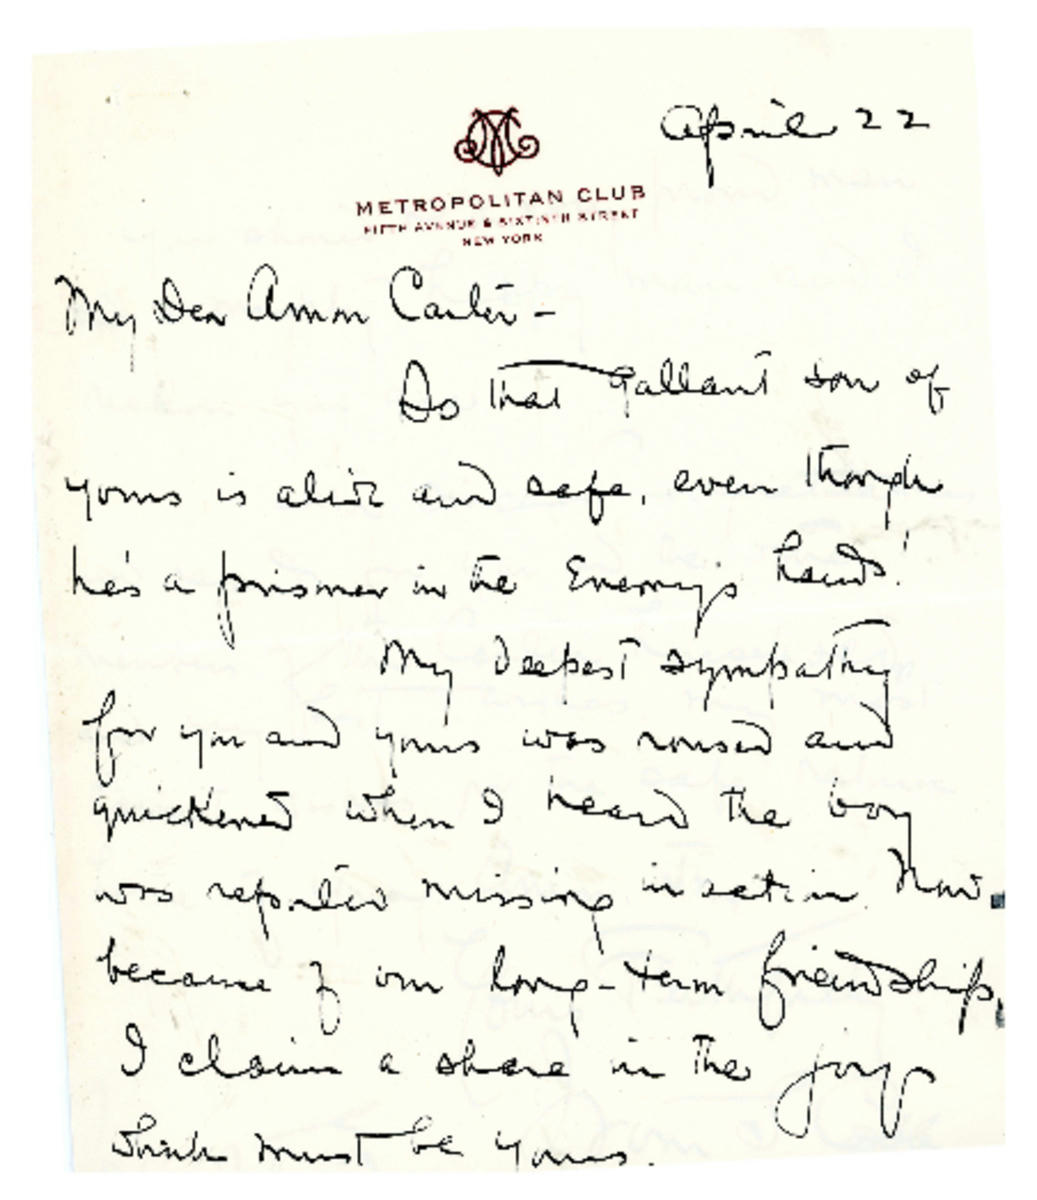 April 22
METROPOLITAN CLUB
FIFTH AVENUE & SIXTIETH STREET
NEW YORK
My Dear Amon Carter -
So that gallant son of
yours is alive and safe, even though
he's a prisoner in the Enemy's hands!
My deepest sympathy
for you and yours was roused and
quickened when I heard the boy
was reported missing in action. Now -
because of our long-term friendship,
I claim a share in the joy
which must be yours.